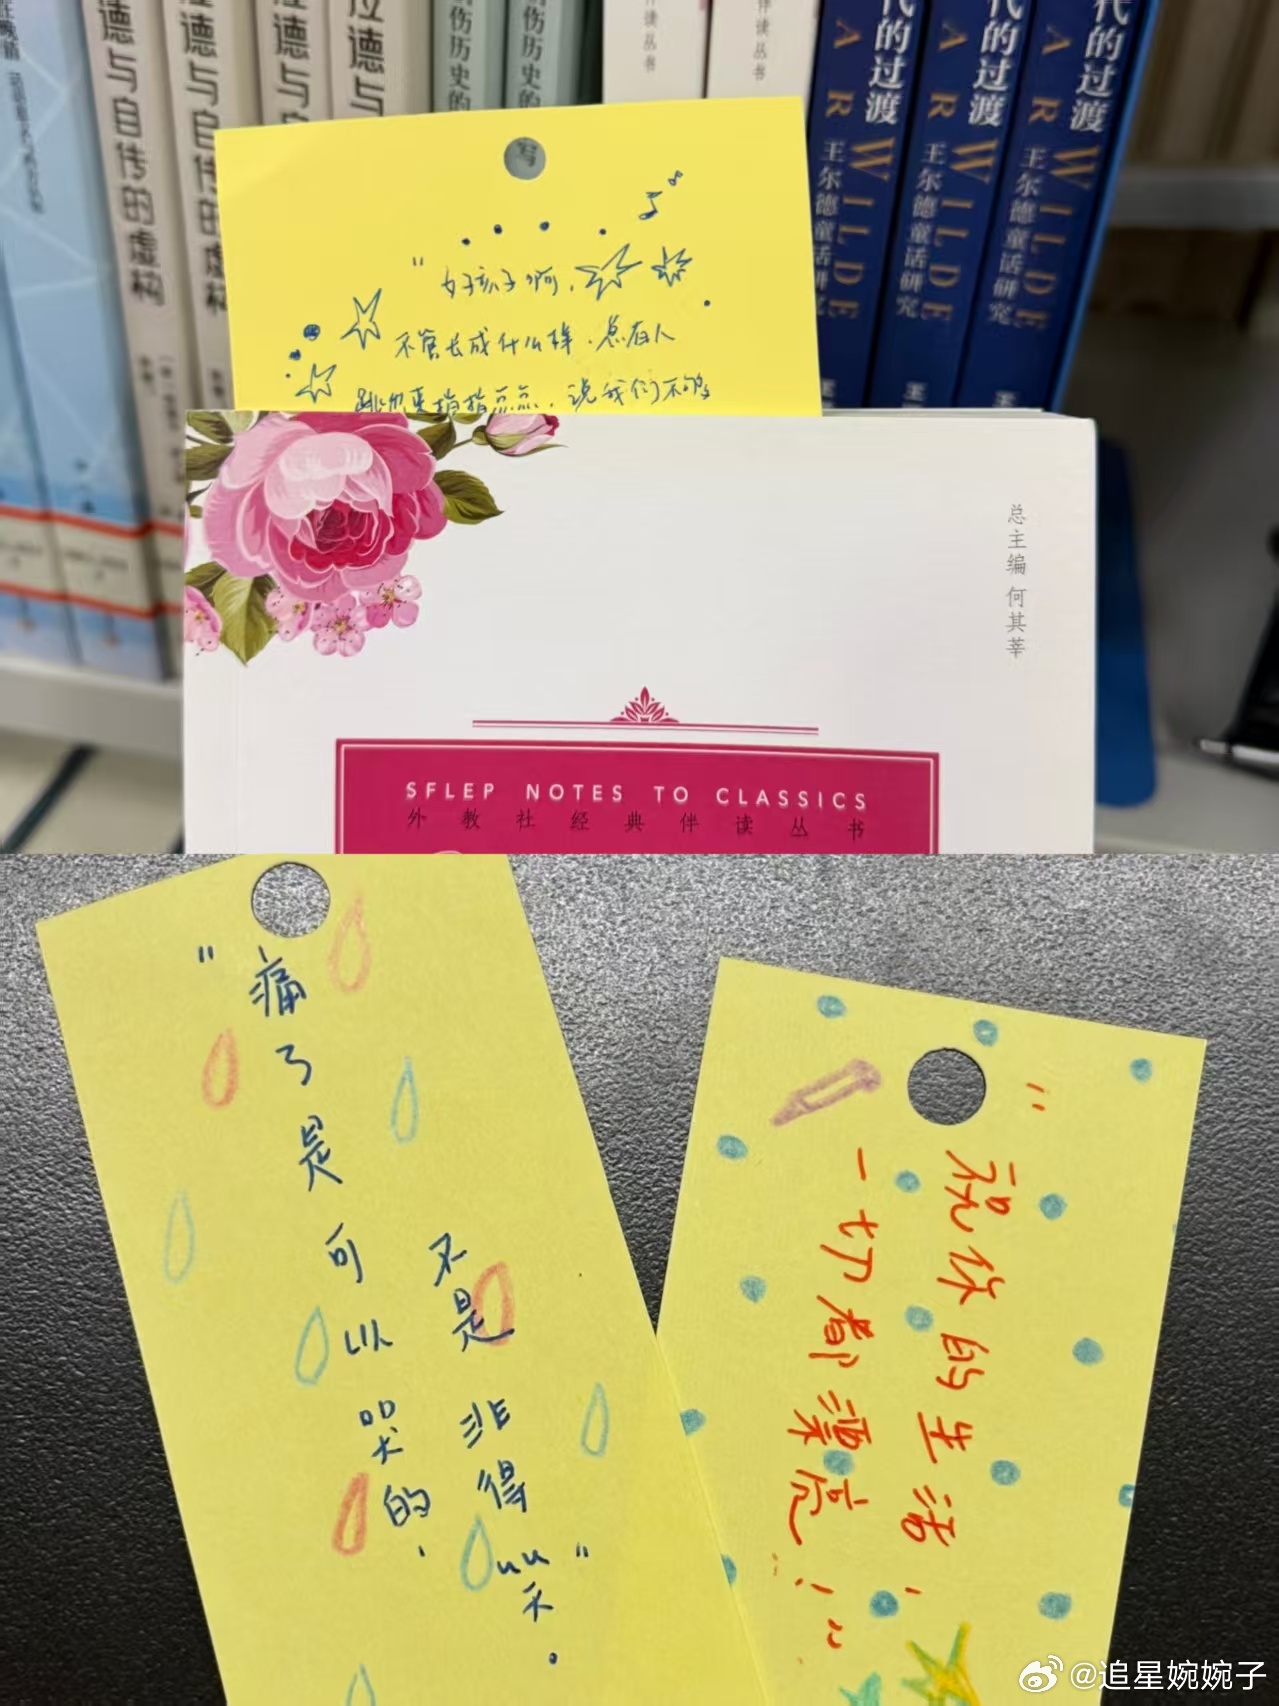 拉德与自传的虚构
拉德与自传的虚构
拉德与
拉德与
伤历史的
伤历史的
伴读丛书
伴读丛书
代的过渡
A R WILDE
王尔德童话研究
代的过渡
A R WILDE
王尔德童话研究
代的过渡
A R WILDE
王尔德童话研究
写
“好孩子啊，
不管长成什么样，总有人
跳出来指指点点，说我们不够
总主编 何其莘
SFLEP NOTES TO CLASSICS
外教社经典伴读丛书
“痛了是可以哭的，
不是非得笑。”
“祝你的生活，
一切都漂亮！”
@追星婉婉子